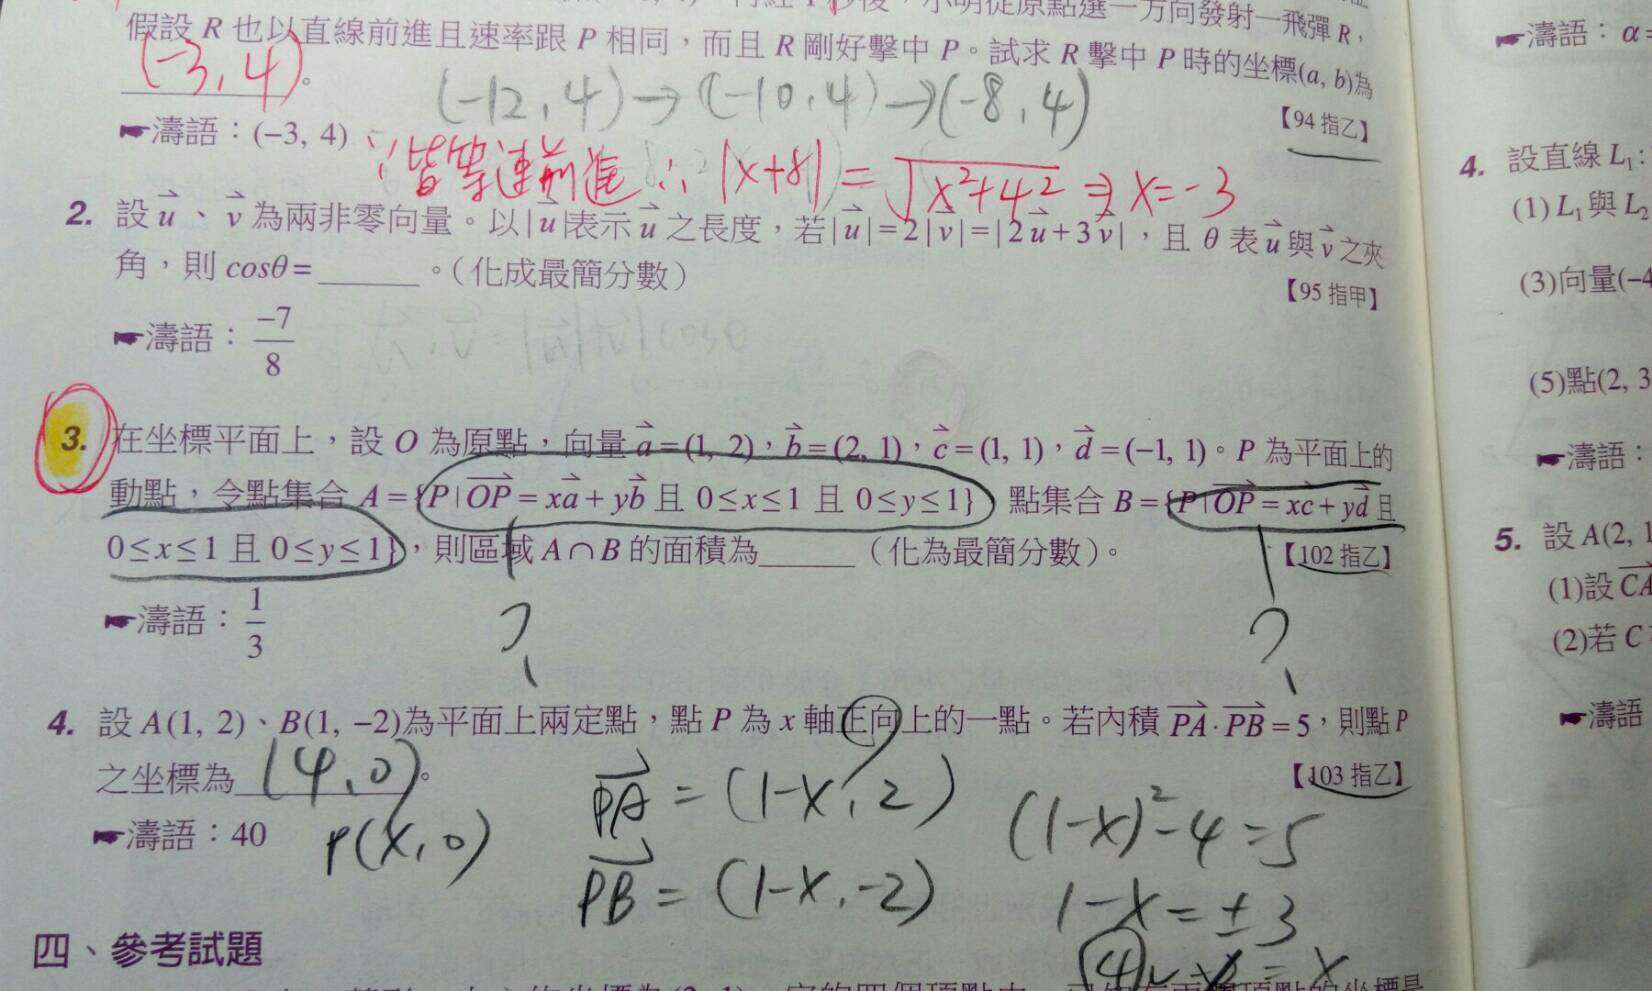 小明從原點選一方向發射一飛彈 R，
假設 R 也以直線前進且速率跟 P 相同，而且 R 剛好擊中 P。試求 R 擊中 P 時的坐標(a, b)為
(-3, 4)。
(-12, 4) → (-10, 4) → (-8, 4)
【94 指乙】
☛濤語：(−3, 4)
∵皆等速前進 ∴ |x+8| = √(x²+4²) ⇒ x=-3
2. 設 u⃗、v⃗ 為兩非零向量。以|u⃗|表示 u⃗ 之長度，若|u⃗|=2|v⃗|=|2u⃗+3v⃗|，且 θ 表 u⃗ 與 v⃗ 之夾
角，則 cosθ=______。（化成最簡分數）
【95 指甲】
☛濤語：−7/8
3. 在坐標平面上，設 O 為原點，向量 a⃗=(1, 2)，b⃗=(2, 1)，c⃗=(1, 1)，d⃗=(−1, 1)。P 為平面上的
動點，令點集合 A={P|OP⃗=xa⃗+yb⃗ 且 0≤x≤1 且 0≤y≤1} 點集合 B={P|OP⃗=xc⃗+yd⃗ 且
0≤x≤1 且 0≤y≤1}，則區域 A∩B 的面積為______（化為最簡分數）。
【102 指乙】
☛濤語：1/3
? ?
4. 設 A(1, 2)、B(1, −2)為平面上兩定點，點 P 為 x 軸正向上的一點。若內積 PA⃗·PB⃗=5，則點 P
之坐標為(4, 0)。
【103 指乙】
☛濤語：40
P(x, 0)
PA⃗ = (1-x, 2)
PB⃗ = (1-x, -2)
(1-x)²-4=5
1-x=±3
四、參考試題
☛濤語：α=
4. 設直線 L₁:
(1) L₁與 L₂
(3)向量(−4
(5)點(2, 3
☛濤語：
5. 設 A(2, 1
(1)設 CA⃗
(2)若 C
☛濤語